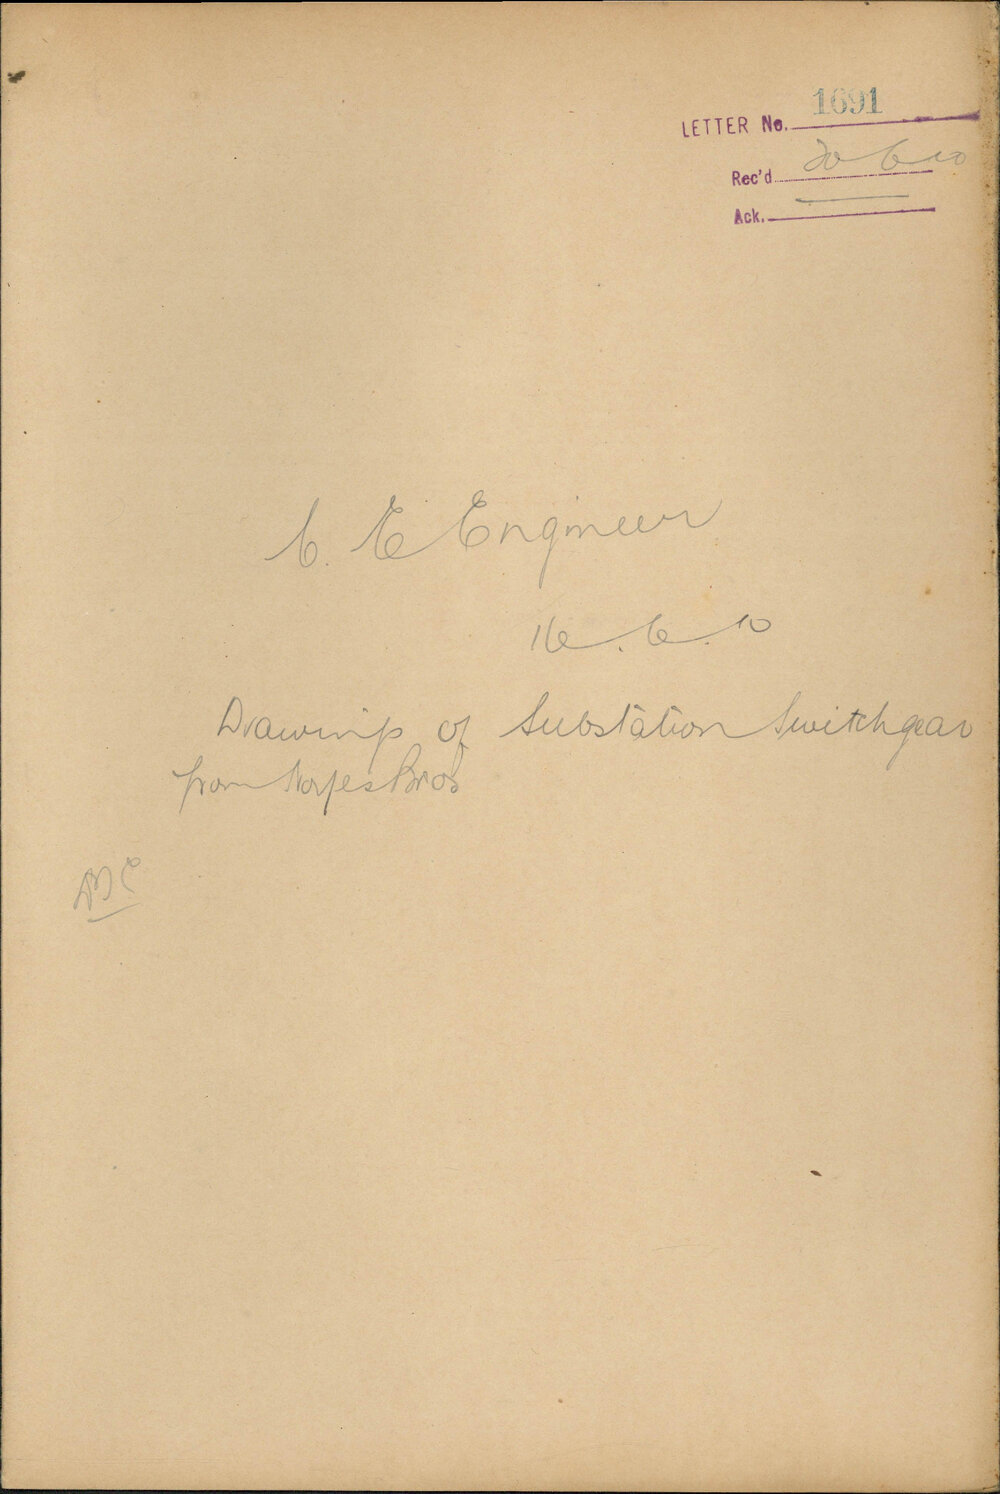 LETTER No. 1691
Rec'd 20 6 10
Ack.
C. E Engineer
16. 6. 10
Drawings of Substation Switchgear
from Noyes Bros